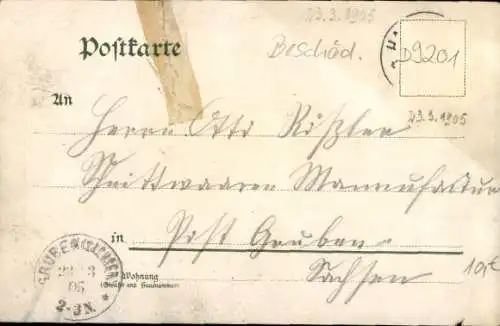 23.3.1905
Postkarte
Beschäd.
D9201
An
23.3.1905
Herrn Otto Rößler
Schnittwaaren Mannufaktur
in Post Gruben
Sachsen
10,-
GRUBEN (SACHSEN)
23 3
05
2-3N.
Wohnung
(Straße und Hausnummer)